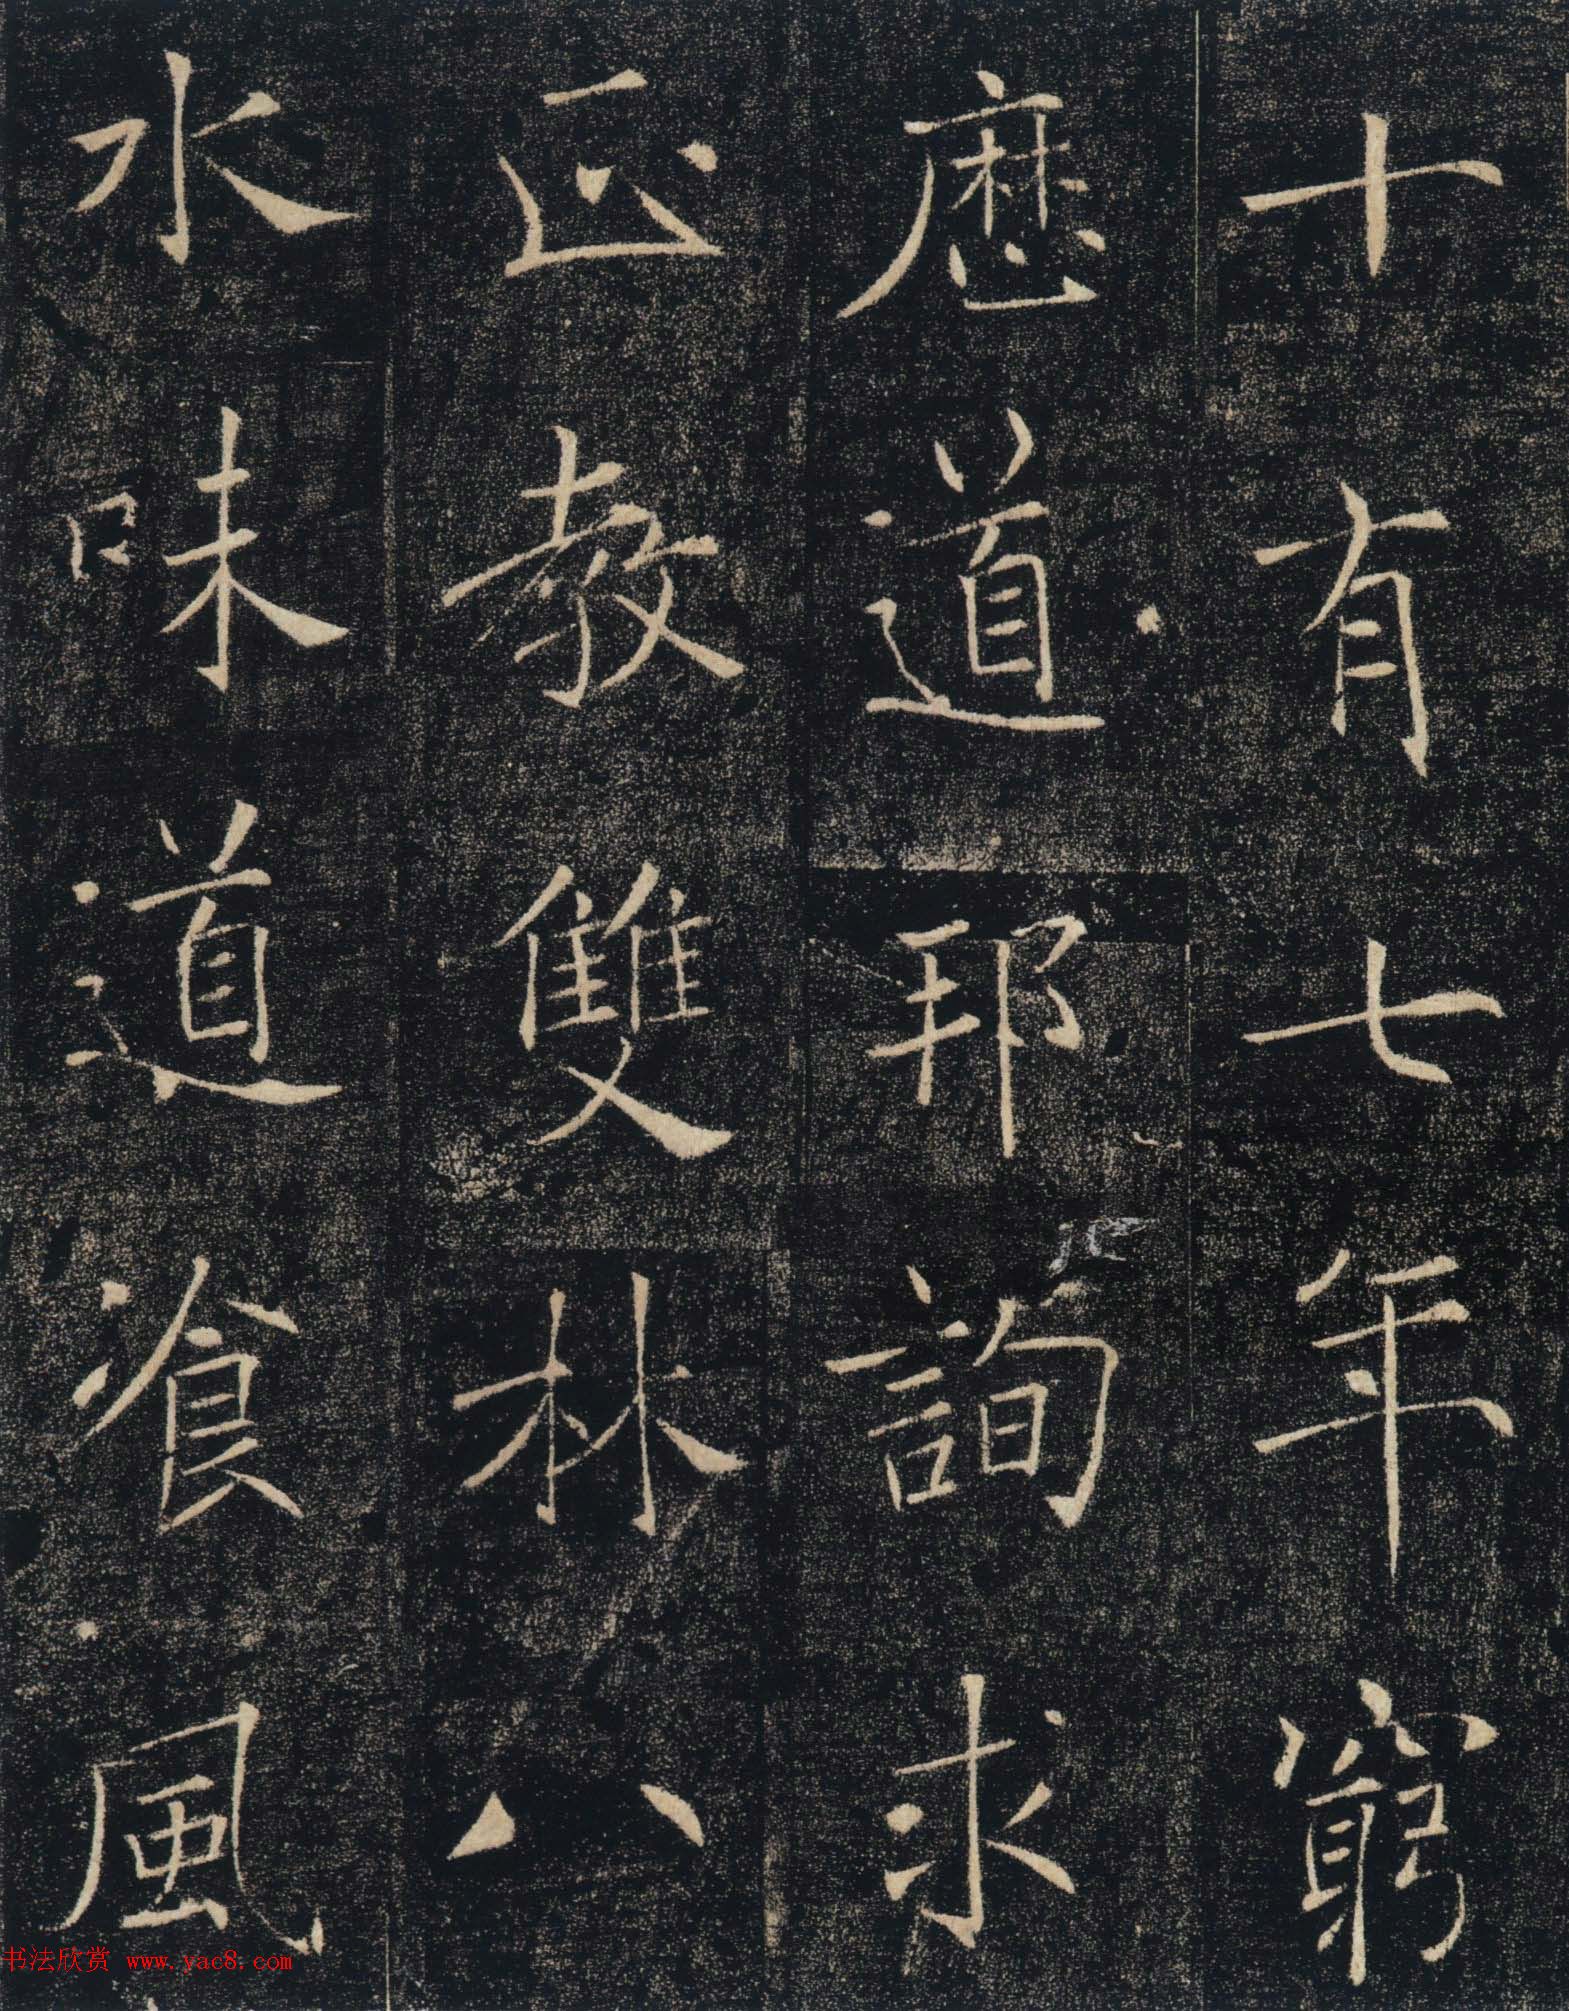 十有七年窮
歷道邦詢求
正教雙林八
水味道飡風
书法欣赏 www.yac8.com